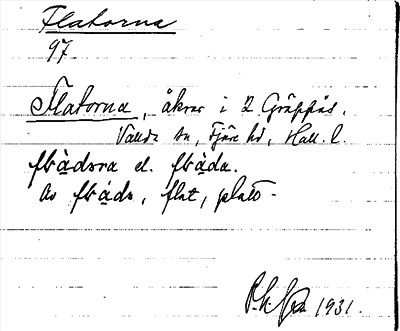 Flatorna
97.
Flatorna, åkrar i 2 Gräppås.
Valda sn, Fjäre hd, Hall. l.
flàdɷra el. flàda.
Av flàdɷ, flat, platt.
1931.